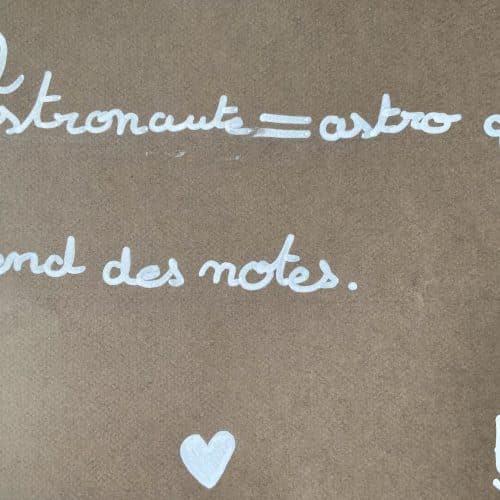 astronaute = astro q
end des notes.